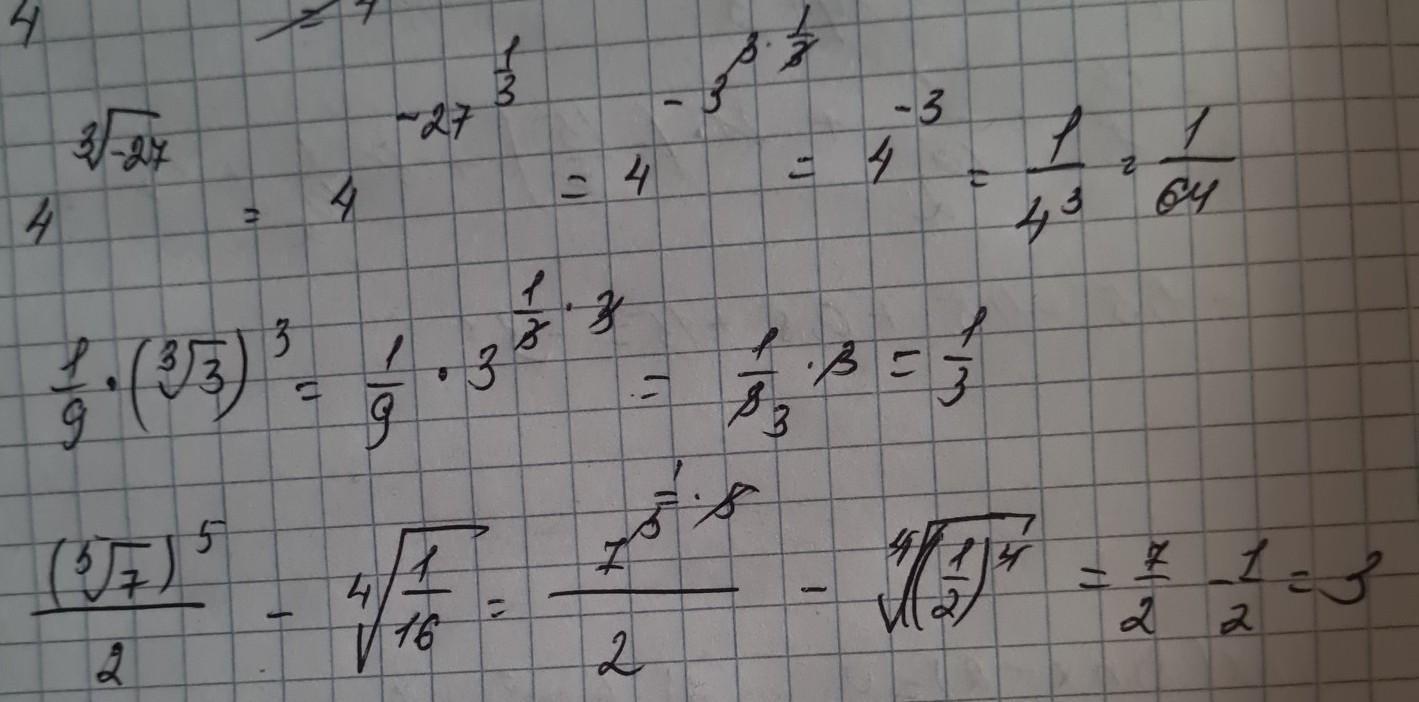 4 = 4
4^∛-27 = 4^-27^1/3 = 4^-3^3·1/3 = 4^-3 = 1/4^3 = 1/64
1/9 · (∛3)^3 = 1/9 · 3^1/3·3 = 1/9 3 · 3 = 1/3
(⁵√7)^5/2 - ⁴√1/16 = 7^1/5·5/2 - ⁴√(1/2)^4 = 7/2 - 1/2 = 3